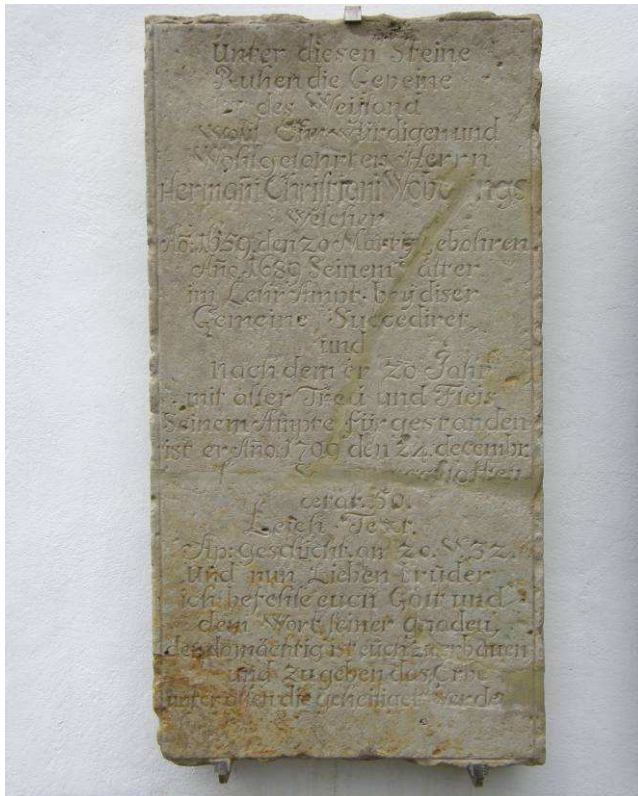 Unter diesen Steine
Ruhen die Gebeine
des Weiland
Wohl Ehrwürdigen und
Wohlgelahrten Herrn
Hermañi Christiani
Welcher
Año. 1659. den 20. Marty gebohren
Año. 1689 Seinem Vatter
im Lehr Ampt. bey diser
Gemeine Succediret
und
Nach dem er 20 Jahr
mit aller Treu und Fleis
Seinem Ampte fürgestanden
ist er Año. 1709 den decembr.
ætat. 50.
Leich Text.
Ap: Geschicht. an 20. V. 32.
Und nun Lieben brüder
ich befehle euch Gott und
dem Wort seiner gnaden,
der da mächtig ist euch zu erbauen
und zu geben das Erbe
unter allen die geheiliget werde